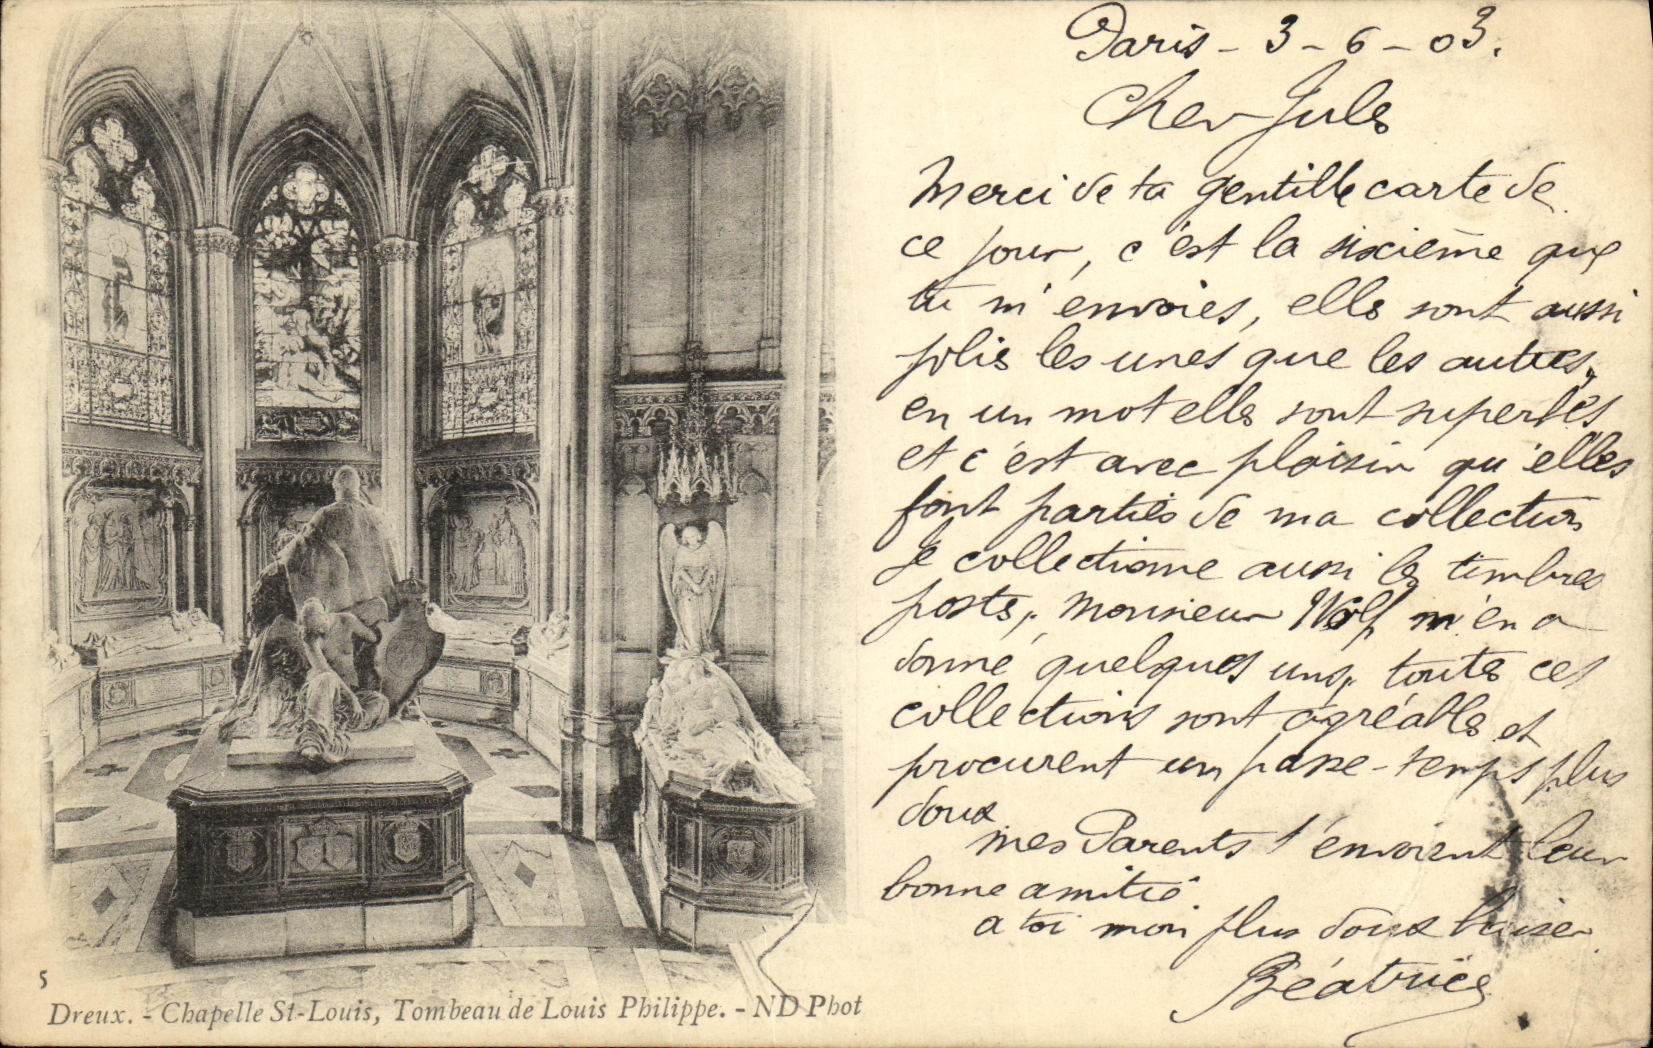 Paris - 3 - 6 - 03.
Cher Jules
Merci de ta gentille carte de
ce jour, c'est la sixième que
tu m'envoies, elles sont aussi
jolis les unes que les autres,
en un mot elles sont superbes
et c'est avec plaisir qu'elles
font parties de ma collection
Je collectionne aussi les timbres
posts, Monsieur Wolf m'en a
donné quelques uns, toutes ces
collections sont agréables et
procurent un passe-temps plus
doux
mes Parents t'envoient leur
bonne amitié.
a toi mon plus doux baiser
Béatrice
5
Dreux. - Chapelle St-Louis, Tombeau de Louis Philippe. - ND Phot